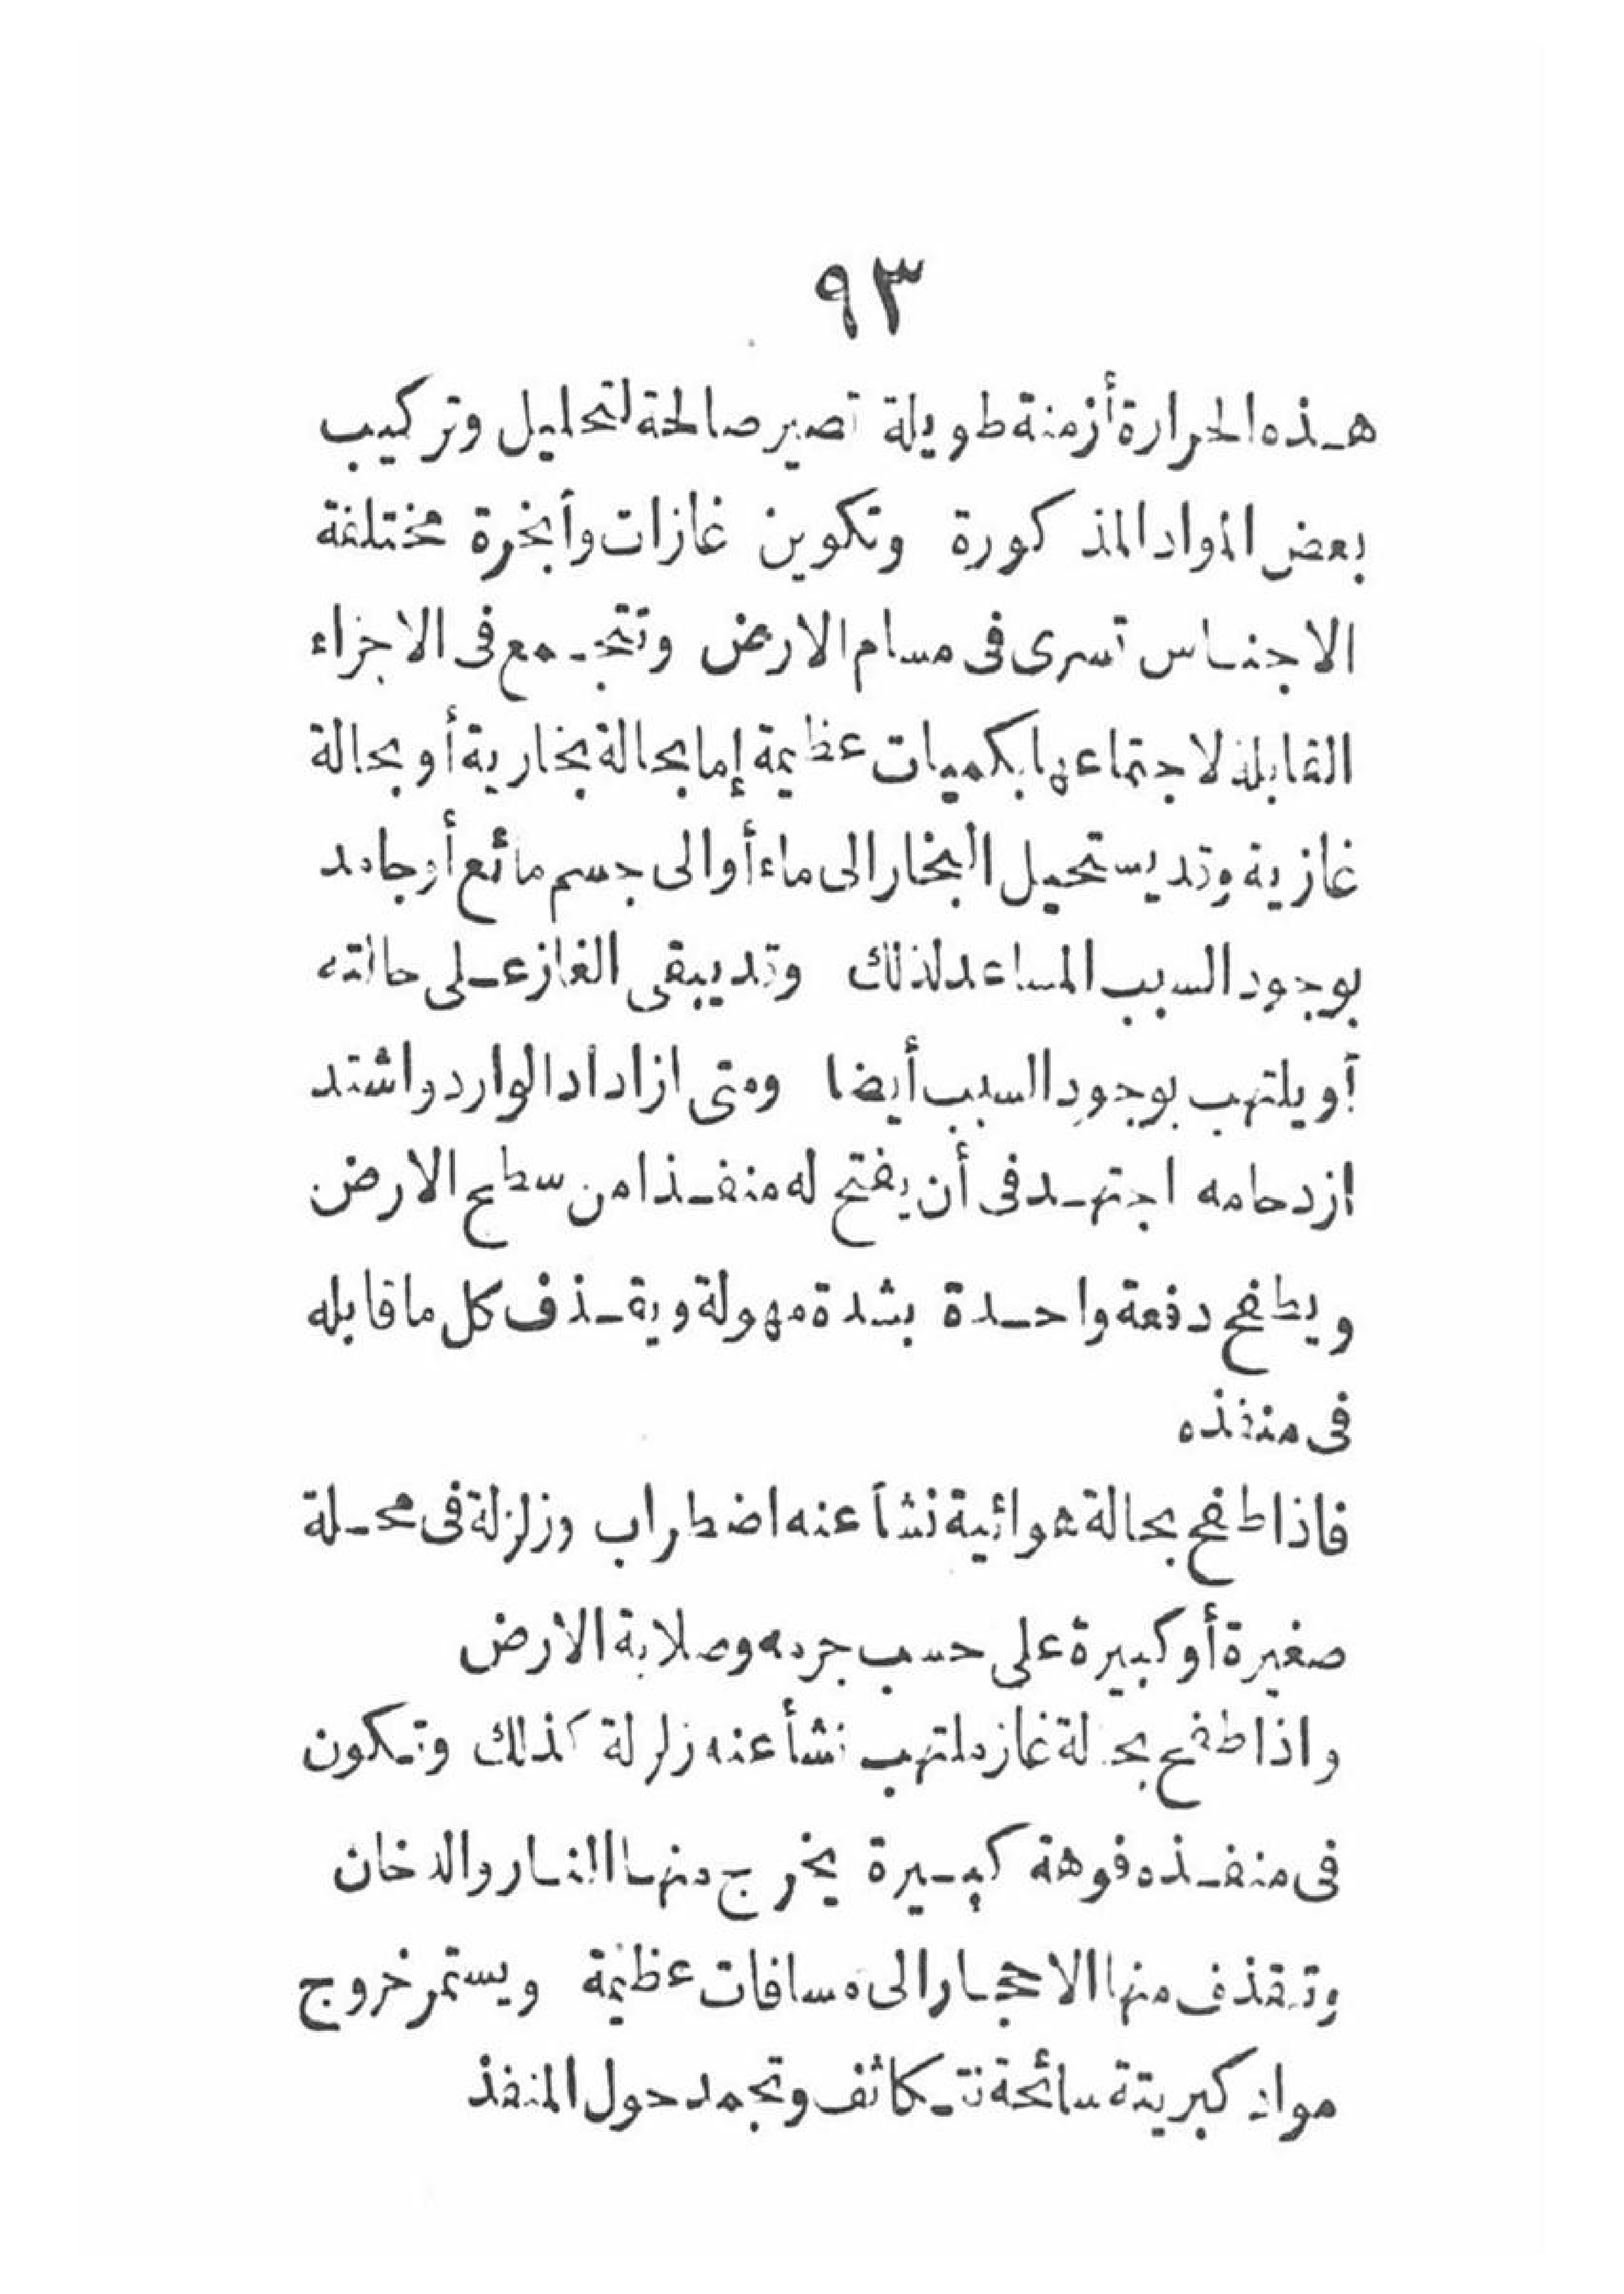 ٩٣
هذه الحرارة أزمنة طويلة تصير صالحة لتحليل وتركيب
بعض المواد المذكورة وتكوين غازات وأبخرة مختلفة
الاجناس تسرى فى مسام الارض وتتجمع فى الاجزاء
القابلة لاجتماعها بكميات عظيمة إما بحالة بخارية أو بحالة
غازية وقد يستحيل البخار الى ماء أو الى جسم مائع أو جامد
بوجود السبب المساعد لذلك وقد يبقى الغاز على حالته
أو يلتهب بوجود السبب أيضا ومتى ازداد الوارد واشتد
ازدحامه اجتهد فى أن يفتح له منفذا من سطح الارض
ويطفح دفعة واحدة بشدة مهولة ويقذف كل ما قابله
فى منفذه
فاذا طفح بحالة هوائية نشأ عنه اضطراب وزلزلة فى محلة
صغيرة أو كبيرة على حسب جرمه وصلابة الارض
واذا طفح بحالة غاز ملتهب نشأ عنه زلزلة كذلك وتكون
فى منفذه فوهة كبيرة يخرج منها النار والدخان
وتقذف منها الاحجار الى مسافات عظيمة ويستمر خروج
مواد كبريتة سائحة تتكاثف وتجمد حول المنفذ